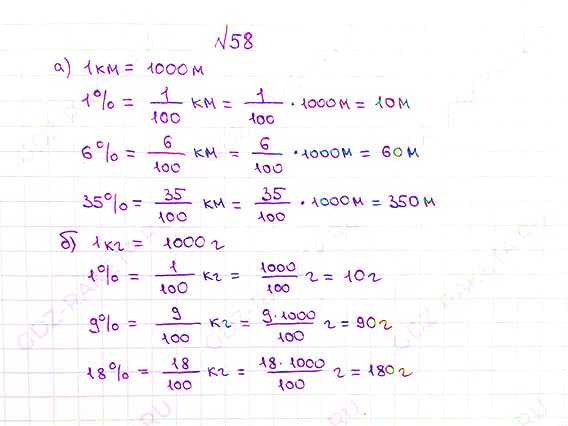 №58
а) 1км = 1000м
1% = 1/100 км = 1/100 · 1000м = 10м
6% = 6/100 км = 6/100 · 1000м = 60м
35% = 35/100 км = 35/100 · 1000м = 350м
б) 1кг = 1000г
1% = 1/100 кг = 1000/100 г = 10г
9% = 9/100 кг = 9·1000/100 г = 90г
18% = 18/100 кг = 18·1000/100 г = 180г